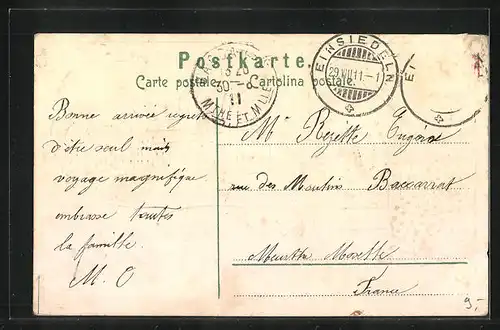 Postkarte.
Carte postale. Cartolina postale.
EINSIEDELN
29.VIII.11.-1
EI
30-8
11
MTHE ET MLLE
Bonne arrivée regrette
d'être seul mais
voyage magnifique
embrasse toutes
la famille.
M. O
Mr Rezette Eugène
rue des Moulins Baccarat
Meurthe Moselle
France
9.-